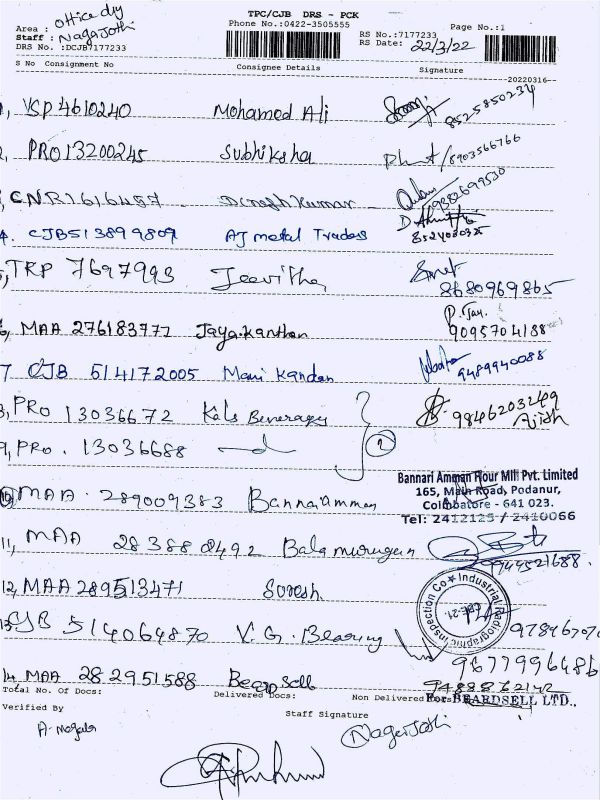 TPC/CJB DRS - PCK
Area : office dly
Phone No.:0422-3505555
Page No.:1
Staff : Nagajothi
RS No.:7177233
DRS No. :DCJB7177233
RS Date: 22/3/22
S No Consignment No Consignee Details Signature
20220316
1, VSP 4610240 Mohamed Ali 8525850234
2. PRO 13200245 Subhiksha 8903566766
3, CNR 1616457 Dineshkumar 9382699530
4. CJB 513899809 AJ metal Traders
5, TRP 7697993 Jeevitha 8680969865
6, MAA 276183777 Jayakanthan P. Jay. 9095704188
7 CJB 514172005 Mani Kandan 9489940088
8, PRO 13036672 Kals Beverages 9846203249
Ajish
9, PRO. 13036688 2
10 MAA. 289009383 Bannariamman
Bannari Amman Flour Mill Pvt. Limited
165, Main Road, Podanur,
Coimbatore - 641 023.
Tel: 2412125 / 2410066
11, MAA 283882492 Balamurugan 9944521688.
12, MAA 289513471 Suresh
Industrial Radiographic Inspection Co
CBE-21
13. CJB 514064870 V. G. Bearing
9677996486
14. MAA 282951588 Beardsell
9488862142
Total No. of Docs: Delivered Docs: Non Delivered Docs:
For BEARDSELL LTD.,
Verified By Staff Signature
Nagajothi